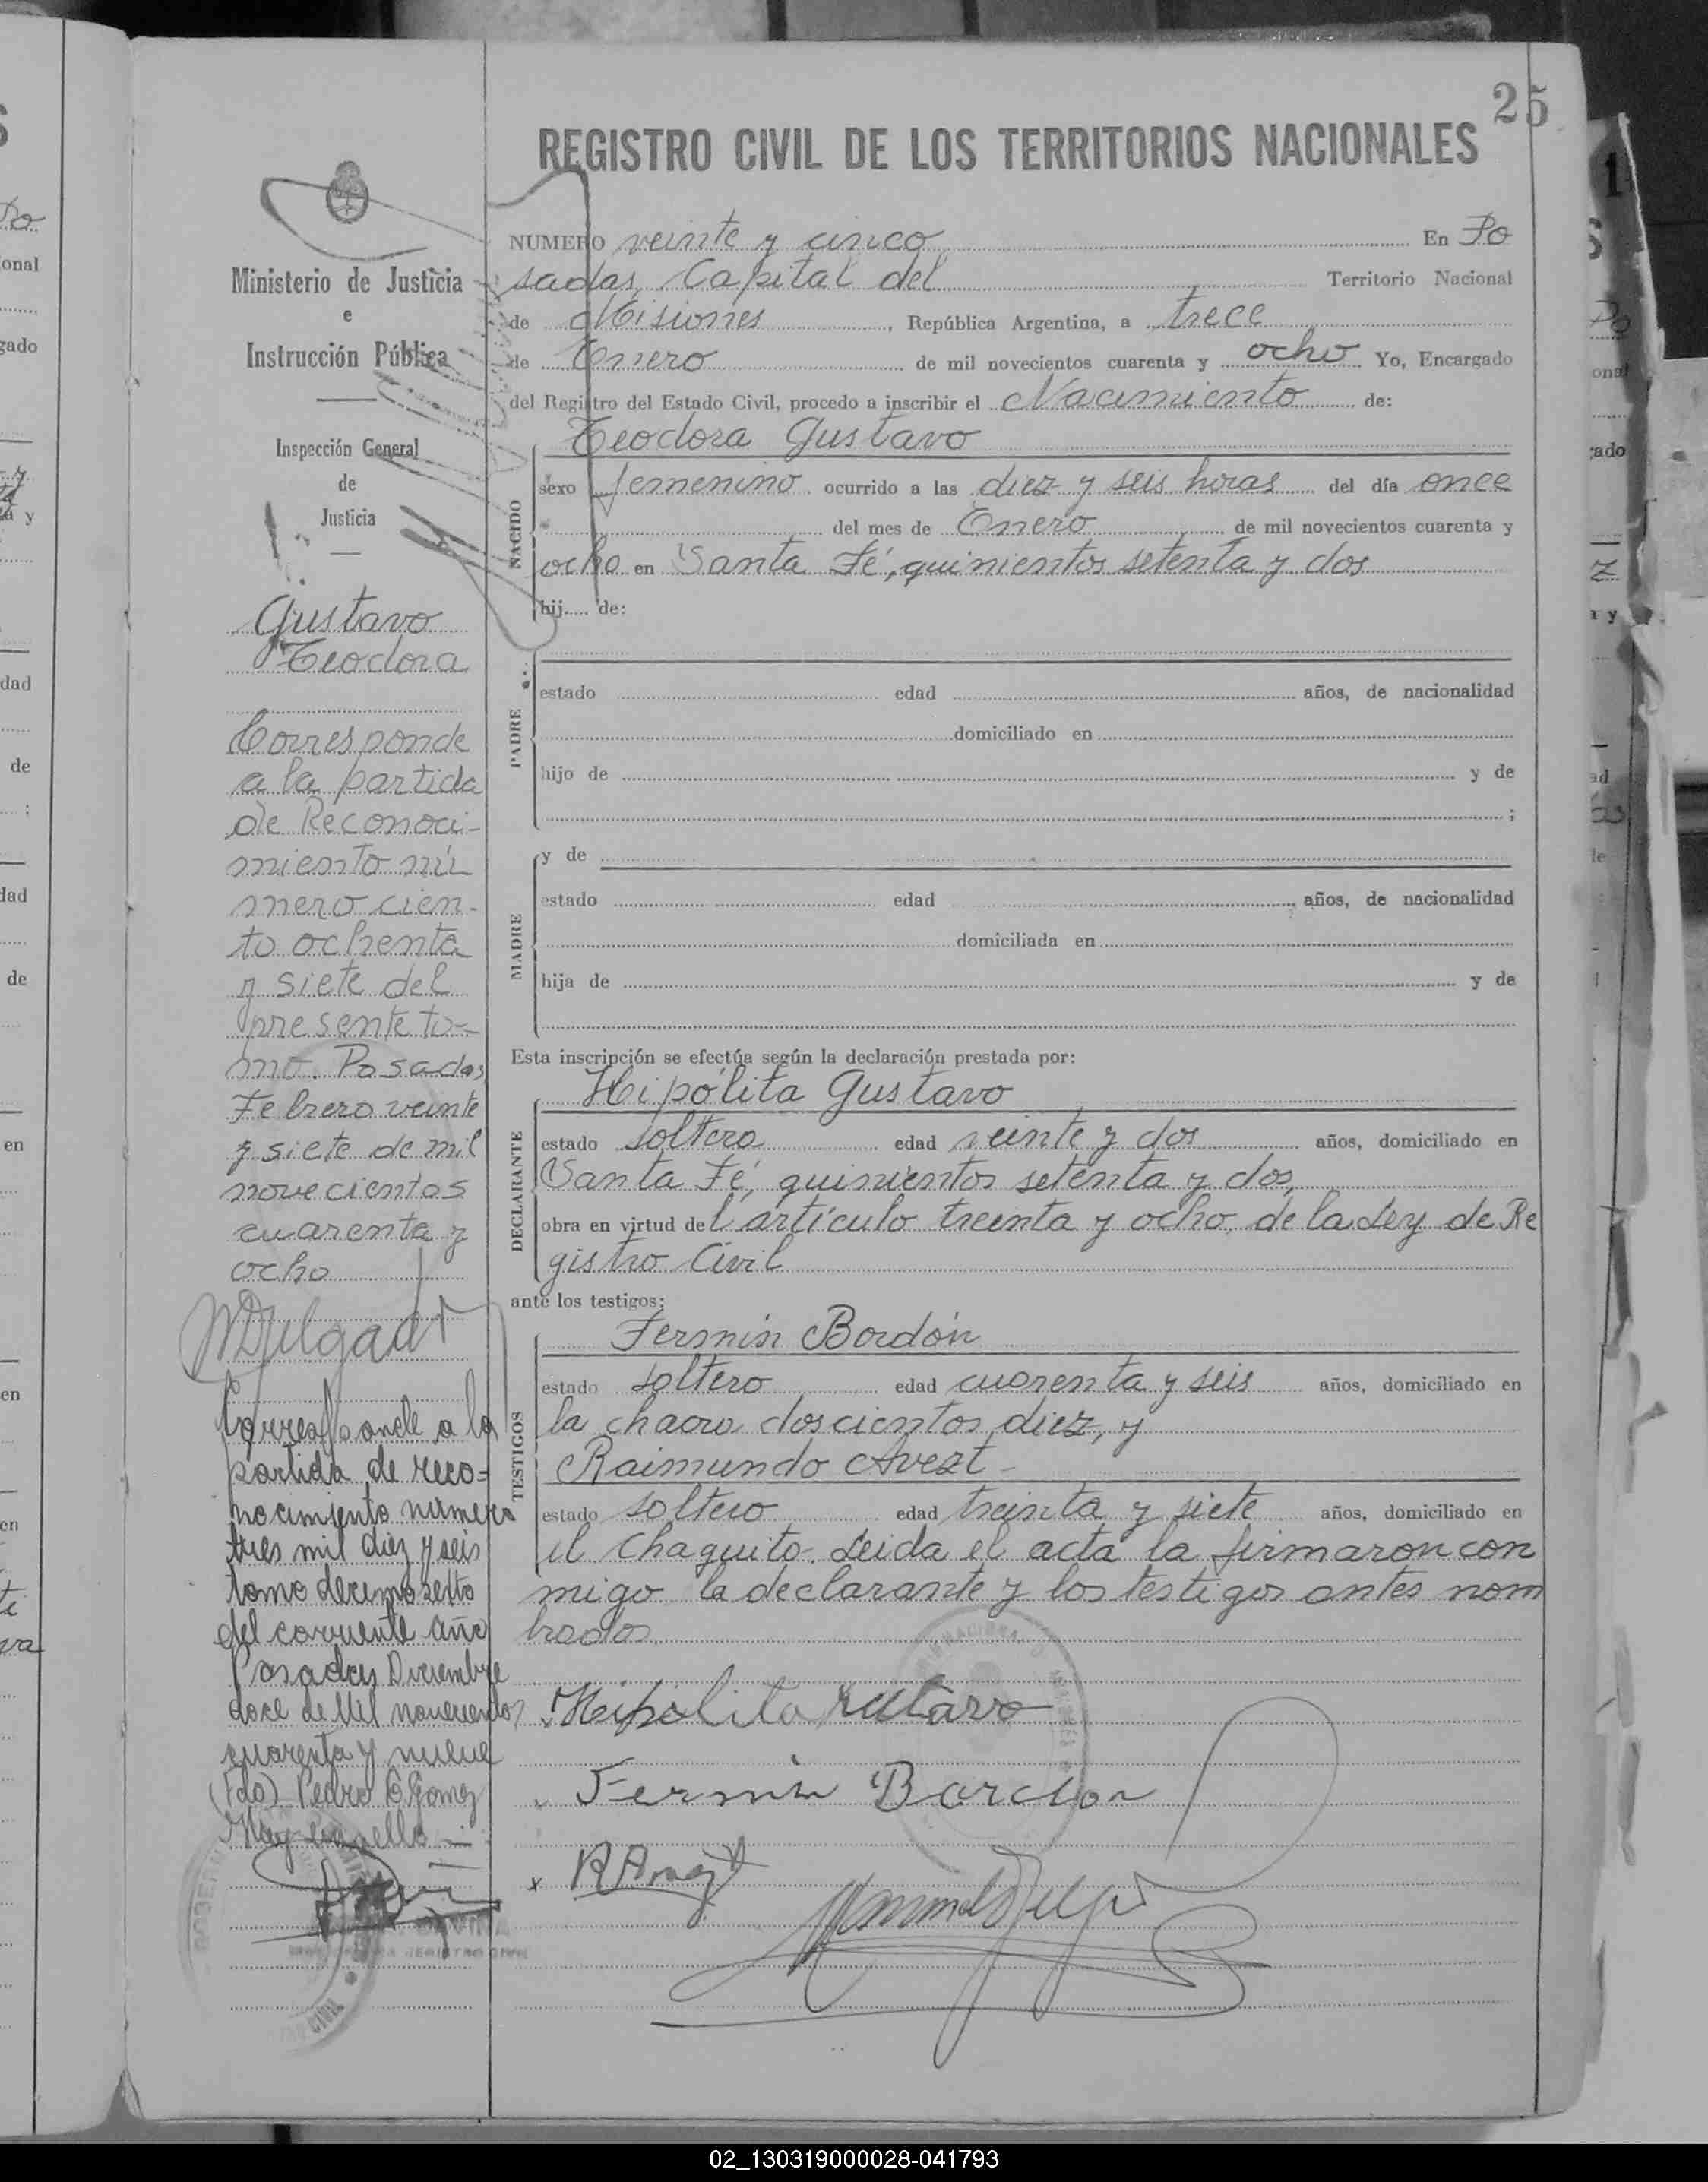 25
REGISTRO CIVIL DE LOS TERRITORIOS NACIONALES
NUMERO veinte y cinco En Po
sadas, Capital del Territorio Nacional
de Misiones, República Argentina, a trece
de Enero de mil novecientos cuarenta y ocho Yo, Encargado
del Registro del Estado Civil, procedo a inscribir el Nacimiento de:
Teodora Gustavo
NACIDO
sexo femenino ocurrido a las diez y seis horas del día once
del mes de Enero de mil novecientos cuarenta y
ocho en Santa Fé, quinientos setenta y dos
hij..... de:
PADRE
estado edad años, de nacionalidad
domiciliado en
hijo de y de
;
MADRE
y de
estado edad años, de nacionalidad
domiciliada en
hija de y de
Esta inscripción se efectúa según la declaración prestada por:
Hipólita Gustavo
DECLARANTE
estado soltera edad veinte y dos años, domiciliado en
Santa Fé, quinientos setenta y dos,
obra en virtud del artículo treinta y ocho de la Ley de Re
gistro Civil
ante los testigos:
Fermín Bordón
TESTIGOS
estado soltero edad cuarenta y seis años, domiciliado en
la chacra doscientos diez, y
Raimundo
estado soltero edad treinta y siete años, domiciliado en
el Chaquito. Leida el acta la firmaron con
migo la declarante y los testigos antes nom
brados.
Hipólita
Fermin Bordon
Ministerio de Justicia
e
Instrucción Pública
Inspección General
de
Justicia
Gustavo
Teodora
Corresponde
a la partida
de Reconoci-
miento nú
mero cien-
to ochenta
y siete del
presente to-
mo. Posadas,
Febrero veinte
y siete de mil
novecientos
cuarenta y
ocho
Corresponde a la
partida de reco-
nocimiento número
tres mil diez y seis
tomo decimo sexto
del corriente año
Posadas Diciembre
doce de Mil novecientos
cuarenta y nueve
(Fdo) Pedro E. Gomez
Hay un sello
02_130319000028-041793